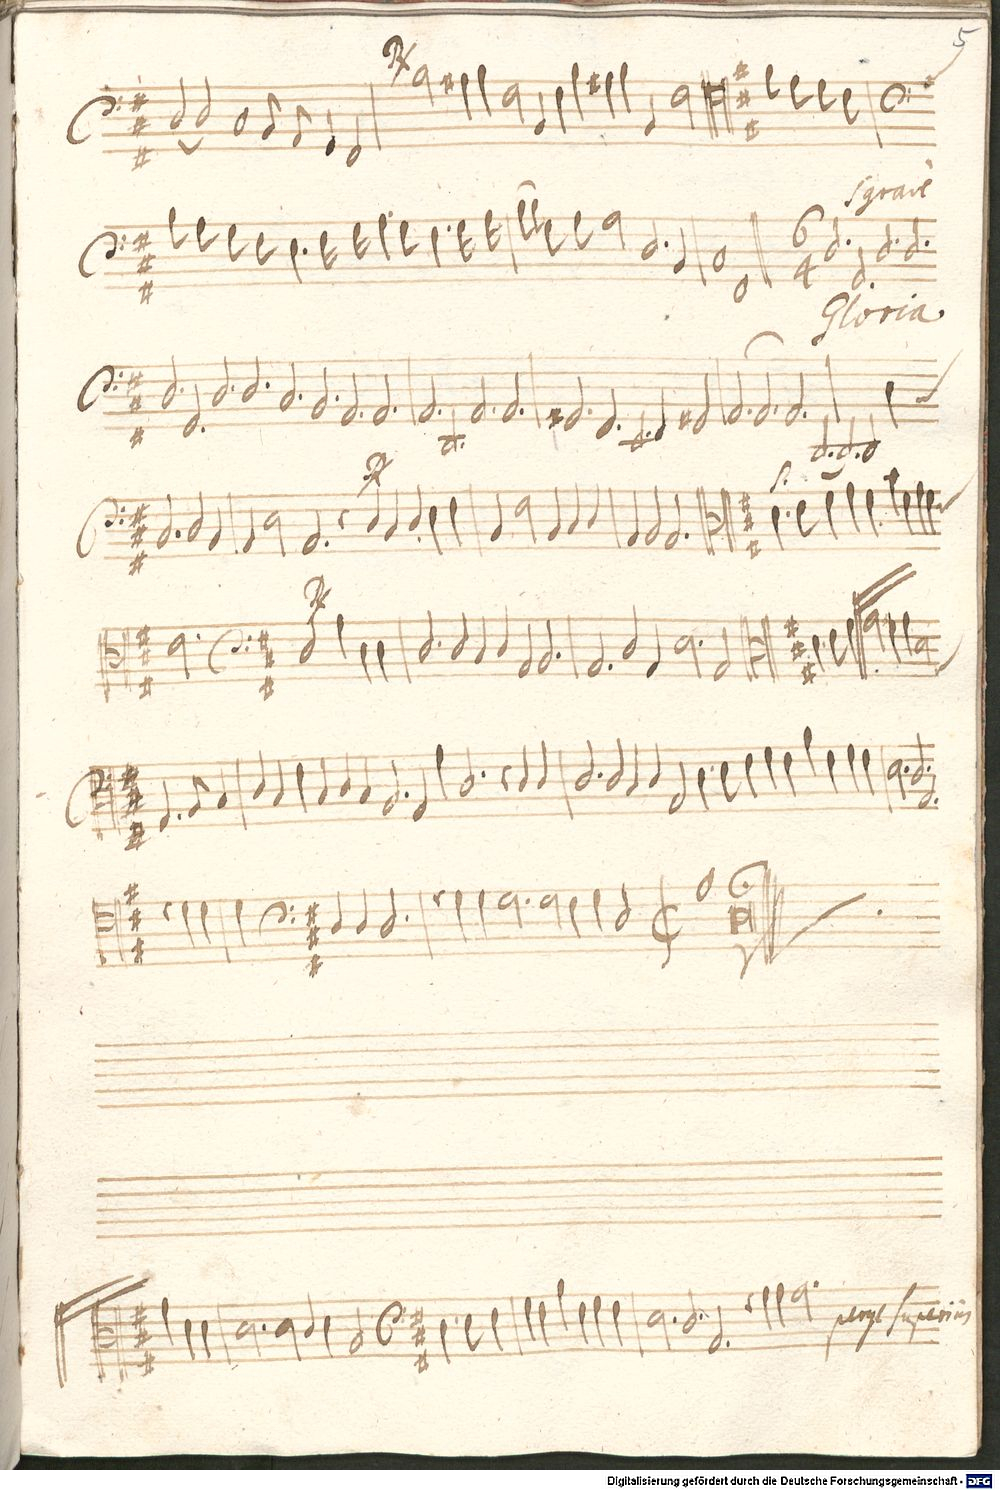 5
grave
6
4
Gloria
superius
Digitalisierung gefördert durch die Deutsche Forschungsgemeinschaft - DFG